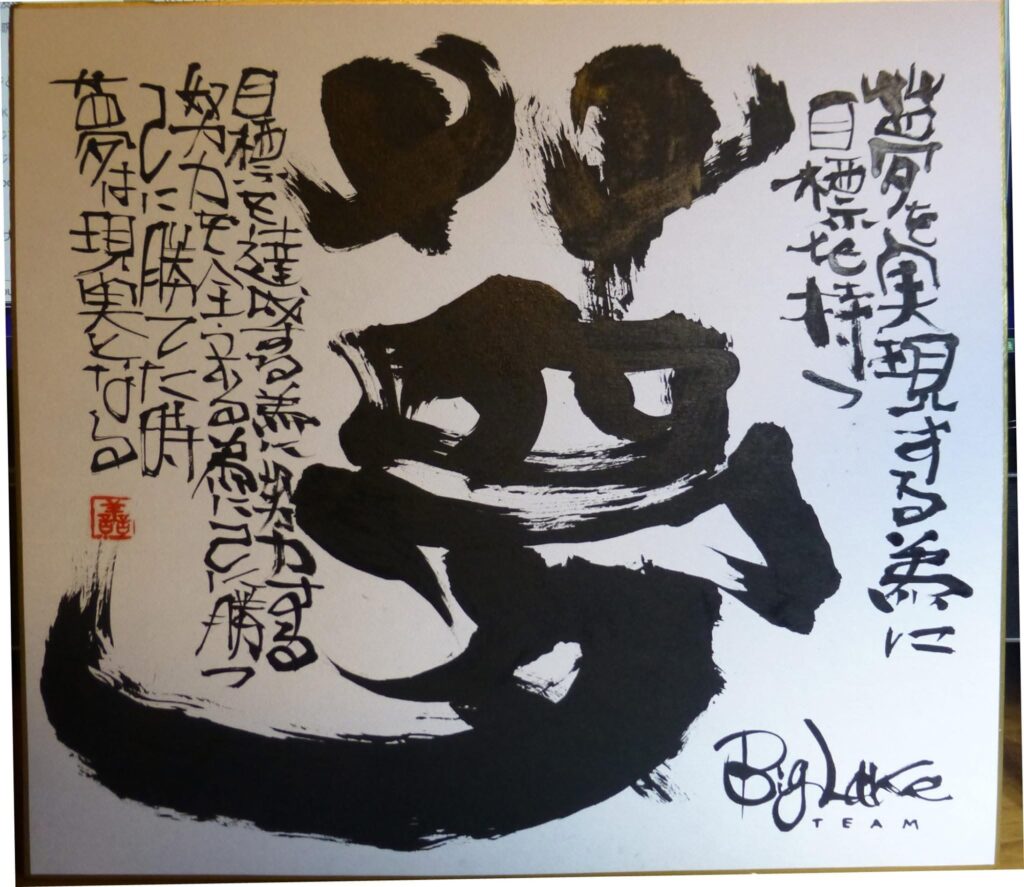 夢を実現する為に
目標を持つ
夢
目標を達成する為に努力する
努力を全うする為に己に勝つ
己に勝てた時
夢は現実となる
善
Big Lake
TEAM